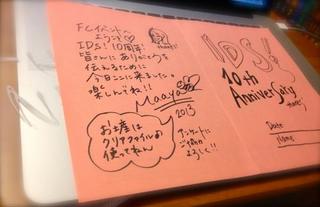 FCイベントへ
ようこそ♡
IDS! 10周年!
皆さんにありがとうを
伝えるために
今日ここに来ました。
楽しんでね!!
Maaya
2013
お土産は
クリアファイル
使ってねん
アンケートに
ご協力
よろしく!!
IDS!
10th
Anniversary
Date
Name